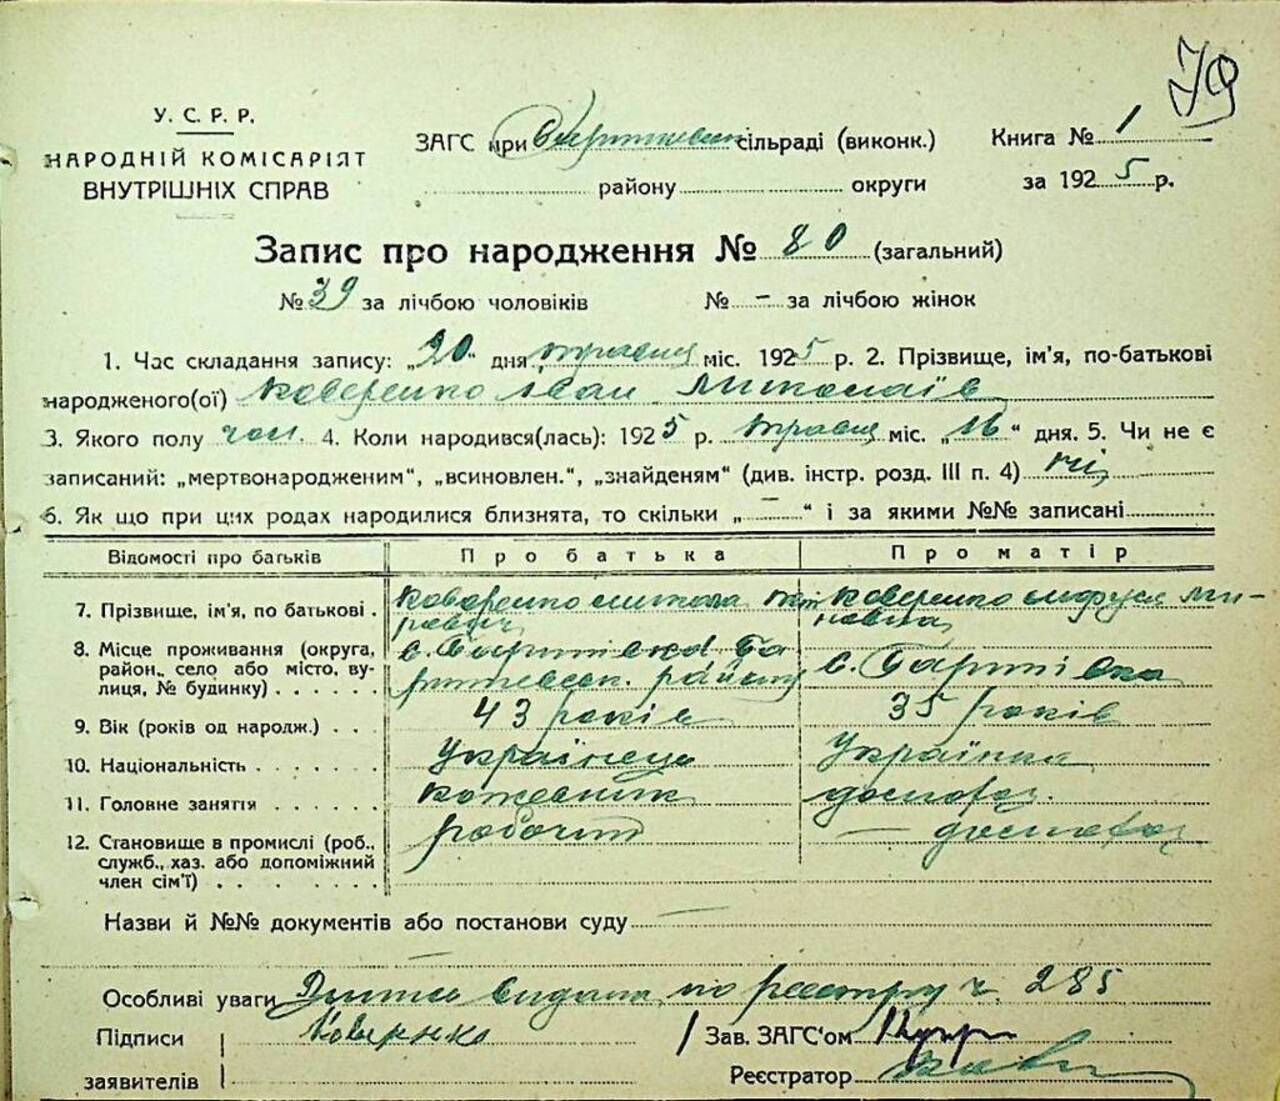 79
У. С. Р. Р.
НАРОДНІЙ КОМІСАРІЯТ
ВНУТРІШНІХ СПРАВ
ЗАГС при сільраді (виконк.)
району округи
Книга № 1
за 1925 р.
Запис про народження № 80 (загальний)
№ 39 за лічбою чоловіків № — за лічбою жінок
1. Час складання запису: „20" дня травня міс. 1925 р. 2. Прізвище, ім'я, по-батькові
народженого(ої) Коверенко Іван Миколаїв
3. Якого полу чол. 4. Коли народився(лась): 1925 р. травня міс. „16" дня. 5. Чи не є
записаний: „мертвонародженим", „всиновлен.", „знайденям" (див. інстр. розд. III п. 4) ні
6. Як що при цих родах народилися близнята, то скільки „—" і за якими №№ записані
Відомості про батьків Про батька Про матір
7. Прізвище, ім'я, по батькові . Коверенко Микола Коверенко Ми-
новна
8. Місце проживання (округа,
район., село або місто, ву-
лиця, № будинку) . . . . . .
с. Баришівка Ба
ришевск. району с. Баришівка
9. Вік (років од народж.) . . . 43 років 35 років
10. Національність . . . . . . Українець Українка
11. Головне заняття . . . . . . кожевник господ.
12. Становище в промислі (роб.,
служб., хаз. або допоміжний
член сім'ї) . . . . . . .
робочий — господ
Назви й №№ документів або постанови суду —
Особливі уваги видана по реєстру ч. 285
Підписи
заявителів
Ковернко
Зав. ЗАГС'ом
Реєстратор